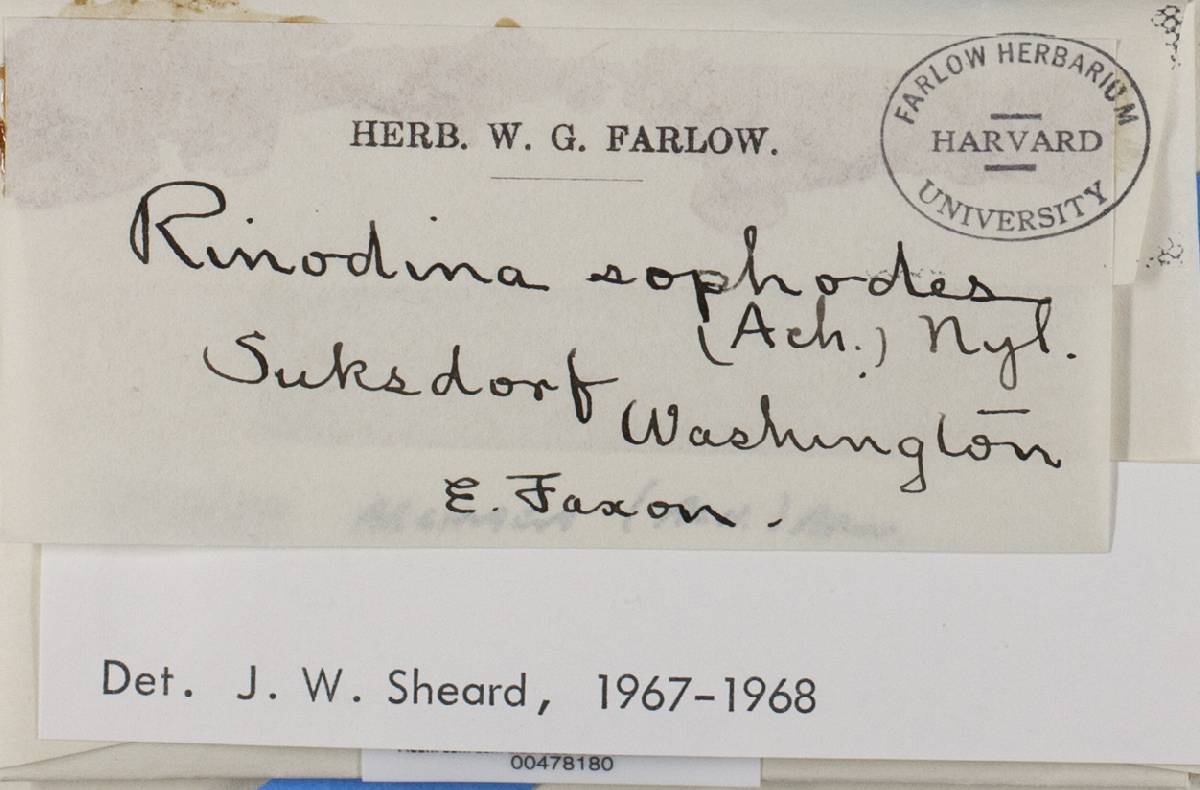 FARLOW HERBARIUM
HARVARD
UNIVERSITY
HERB. W. G. FARLOW.
Rinodina sophodes
(Ach.) Nyl.
Suksdorf
Washington
E. Faxon.
Det. J. W. Sheard, 1967-1968
00478180